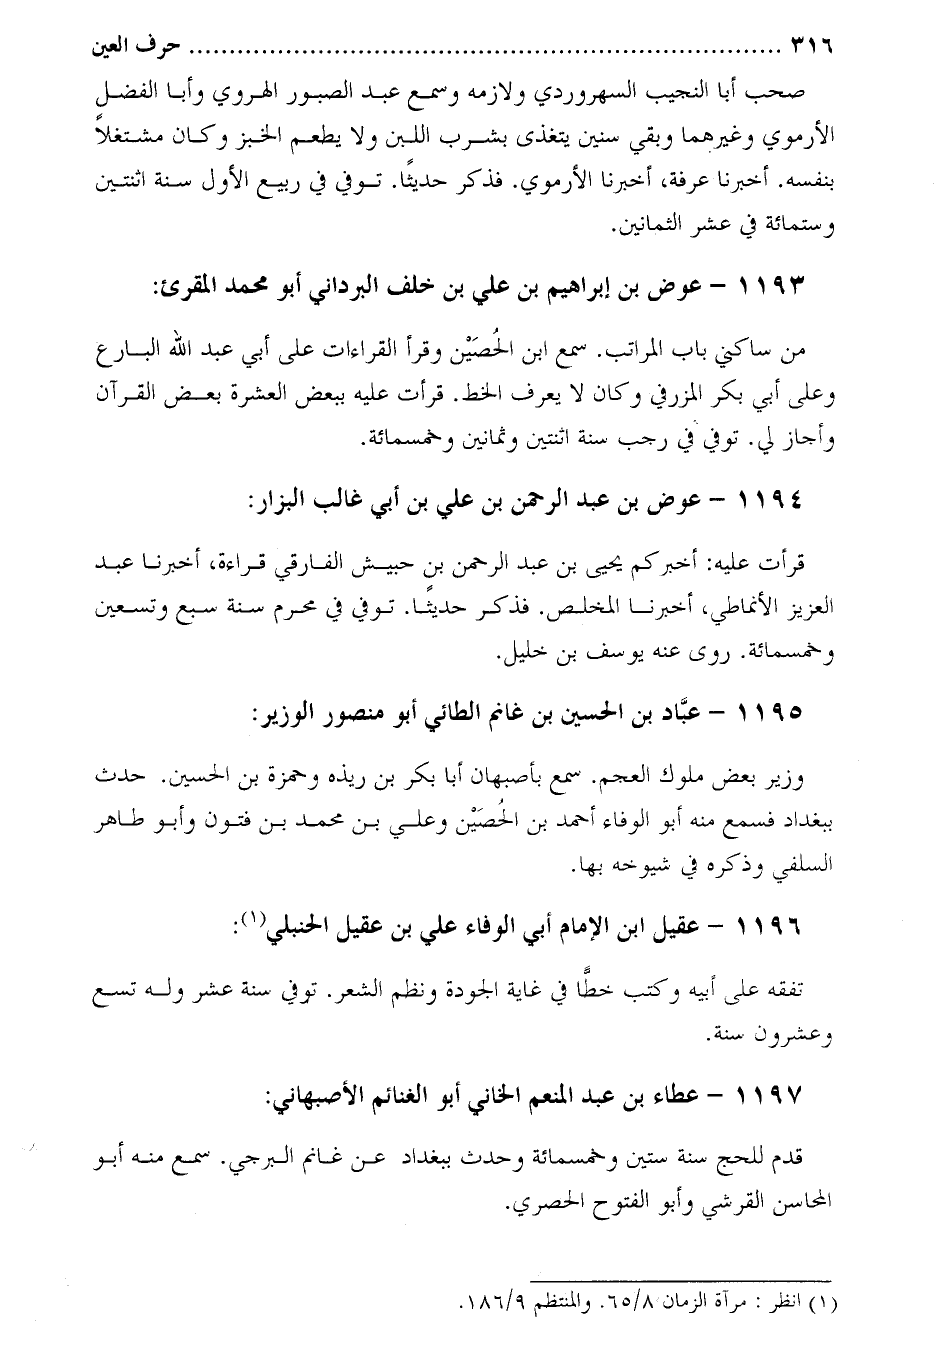 ٣١٦ ........................................................................ حرف العين
صحب أبا النجيب السهروردي ولازمه وسمع عبد الصبور الهروي وأبا الفضل
الأرموي وغيرهما وبقي سنين يتغذى بشرب اللبن ولا يطعم الخبز وكان مشتغلاً
بنفسه. أخبرنا عرفة، أخبرنا الأرموي. فذكر حديثًا. توفي في ربيع الأول سنة اثنتين
وستمائة في عشر الثمانين.
١١٩٣ – عوض بن إبراهيم بن علي بن خلف البرداني أبو محمد المقرئ:
من ساكني باب المراتب. سمع ابن الحُصَيْن وقرأ القراءات على أبي عبد الله البارع
وعلى أبي بكر المزرفي وكان لا يعرف الخط. قرأت عليه ببعض العشرة بعض القرآن
وأجاز لي. توفي في رجب سنة اثنتين وثمانين وخمسمائة.
١١٩٤ – عوض بن عبد الرحمن بن علي بن أبي غالب البزار:
قرأت عليه: أخبركم يحيى بن عبد الرحمن بن حبيش الفارقي قراءة، أخبرنا عبد
العزيز الأنماطي، أخبرنا المخلص. فذكر حديثًا. توفي في محرم سنة سبع وتسعين
وخمسمائة. روى عنه يوسف بن خليل.
١١٩٥ – عبَّاد بن الحسين بن غانم الطائي أبو منصور الوزير:
وزير بعض ملوك العجم. سمع بأصبهان أبا بكر بن ريذه وحمزة بن الحسين. حدث
ببغداد فسمع منه أبو الوفاء أحمد بن الحُصَيْن وعلي بن محمد بن فتون وأبو طاهر
السلفي وذكره في شيوخه بها.
١١٩٦ – عقيل ابن الإمام أبي الوفاء علي بن عقيل الحنبلي(١):
تفقه على أبيه وكتب خطًّا في غاية الجودة ونظم الشعر. توفي سنة عشر وله تسع
وعشرون سنة.
١١٩٧ – عطاء بن عبد المنعم الخاني أبو الغنائم الأصبهاني:
قدم للحج سنة ستين وخمسمائة وحدث ببغداد عن غانم البرجي. سمع منه أبو
المحاسن القرشي وأبو الفتوح الحصري.
(١) انظر : مرآة الزمان ٦٥/٨. والمنتظم ١٨٦/٩.